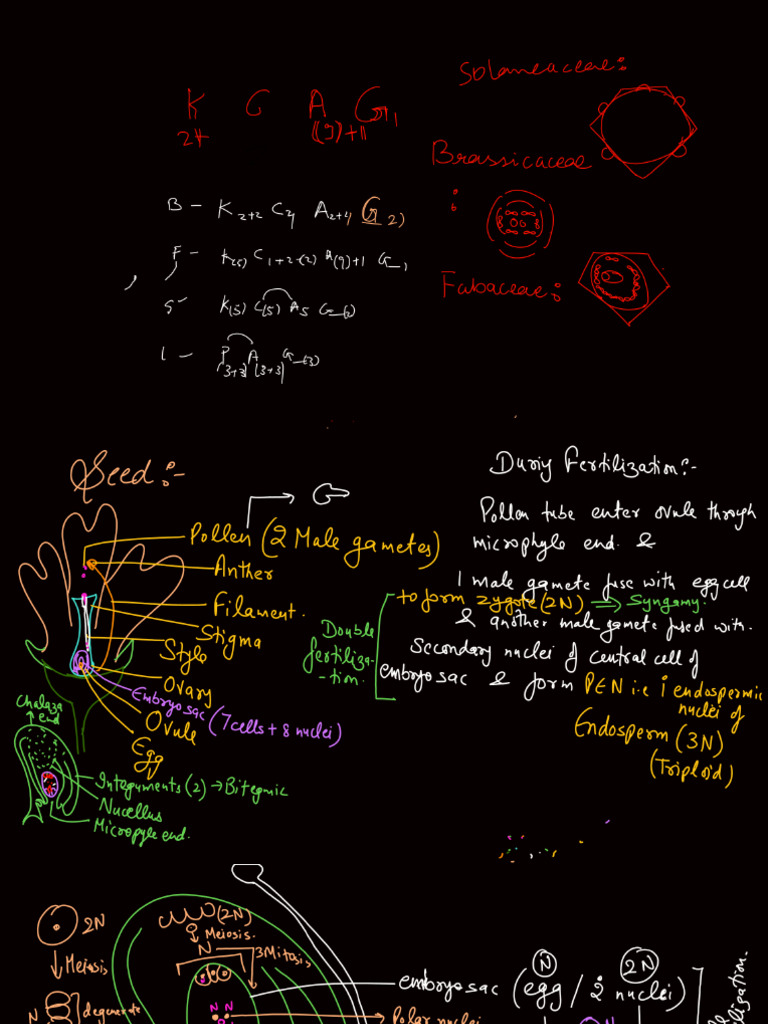 Solaneaceae:
K C A G1
2+ (9)+1
Brassicaceae
:
B - K2+2 C4 A2+4 G2)
F - K(5) C1+2+(2) A(9)+1 G-1
Fabaceae:
S - K(5) C(5) A5 G-(2)
L - P(3+3) A(3+3) G-(3)
Seed:-
Pollen (2 Male gametes)
Anther
Filament.
Stigma
Style
Ovary
Embryosac (7cells + 8 nuclei)
Ovule
Egg
Chalaza
end
Integuments (2) → Bitegmic
Nucellus
Micropyle end.
During Fertilization:-
Pollen tube enter ovule through
microphyle end. &
1 male gamete fuse with egg cell
to form zygote (2N) ⇒ Syngamy.
& another male gamete fused with.
Secondary nuclei of central cell of
embryosac & form PEN i.e 1° endospermic
nuclei of
Endosperm (3N)
(Triploid)
Double
fertiliza-
-tion.
2N
↓Meiosis
N
degenerate
(2N)
↓ Meiosis.
N
3Mitosis
embryosac (egg / 2° nuclei)
N
2N
Polar nuclei
N N